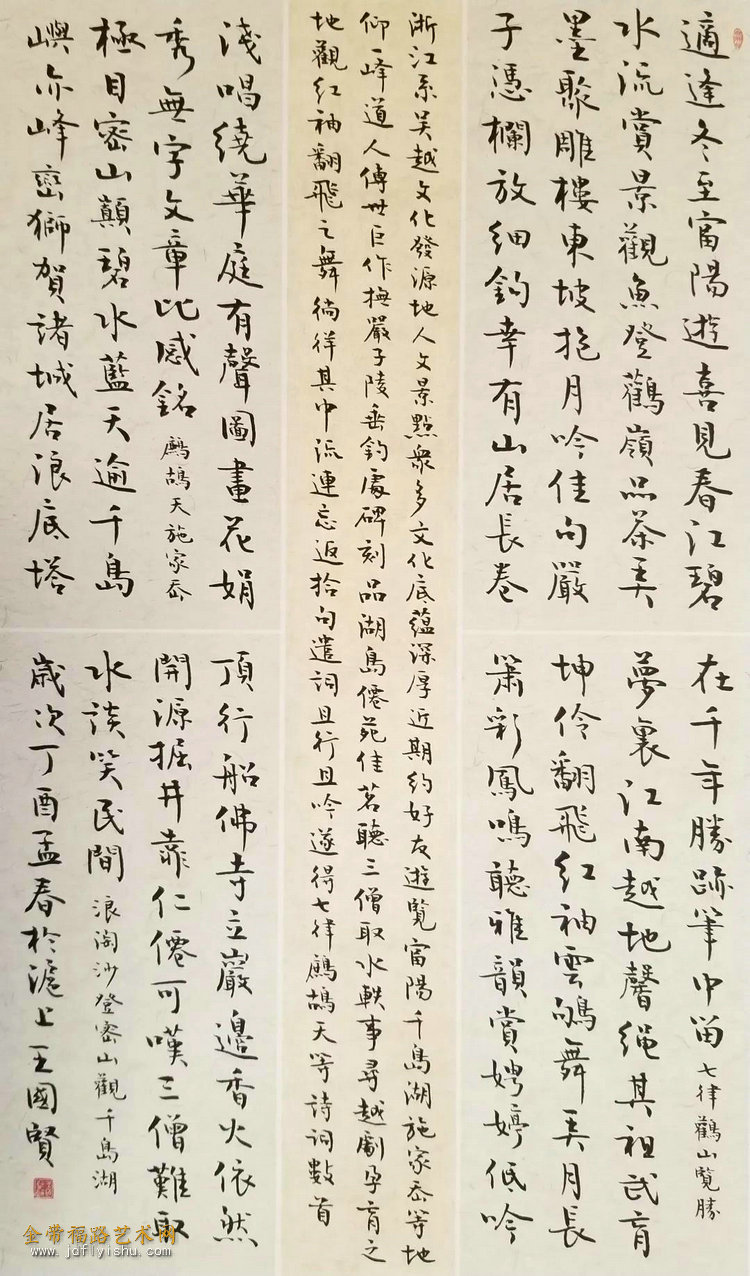 適逢冬至富陽遊喜見春江碧
水流賞景觀魚登鸛嶺品茶弄
墨聚雕樓東坡抱月吟佳句嚴
子憑欄放細鈎幸有山居長卷
在千年勝跡筆中留 七律鸛山覽勝
夢裏江南越地馨绳其祖武育
坤伶翻飛紅袖雲鴻舞弄月長
簫彩鳳鳴聽雅韻賞娉婷低吟
浙江系吴越文化發源地人文景點衆多文化底蕴深厚近期約好友遊覽富陽千島湖施家岙等地
仰一峰道人傳世巨作撫嚴子陵垂釣處碑刻品湖島僊苑佳茗聽三僧取水軼事尋越劇孕育之
地觀紅袖翻飛之舞徜徉其中流連忘返拾句遣詞且行且吟遂得七律鷓鴣天等詩詞數首
淺唱繞華庭有聲圖畫花娟
秀無字文章比感銘 鷓鴣天施家岙
極目密山巔碧水藍天逾千島
嶼亦峰巒獅賀諸城居浪底塔
頂行船佛寺立巖邊香火依然
開源掘井靠仁僊可嘆三僧難取
水談笑民間 浪淘沙登密山觀千島湖
歲次丁酉孟春於滬上王國賢
金带福路艺术网
www.jdflyishu.com